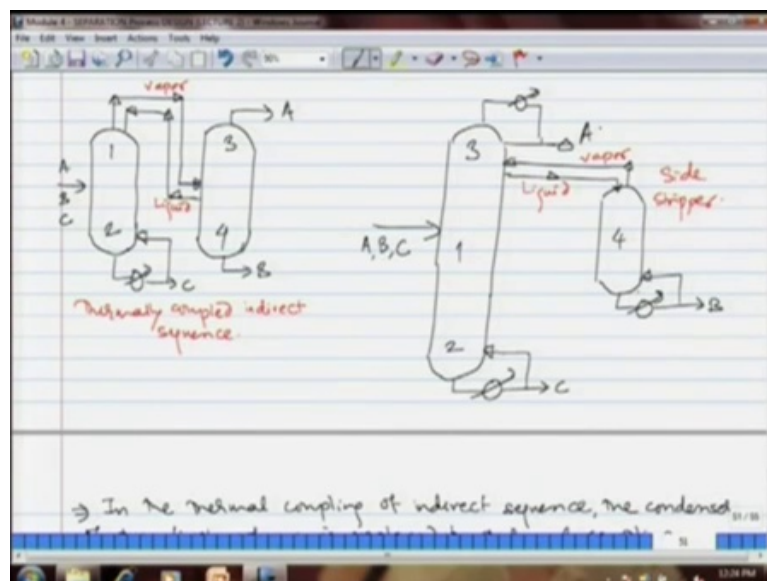 Module 4 - SEPARATION Process DESIGN (LECTURE 2) - Windows Journal
File Edit View Insert Actions Tools Help
90%
vapor
A
1
3
A
B
C
Liquid
2
4
B
C
Thermally coupled indirect
sequence.
3
A
vapor
Side
Liquid
stripper.
A, B, C
1
4
B
2
C
⇒ In the thermal coupling of indirect sequence, the condenser
51 / 55
51
12:24 PM